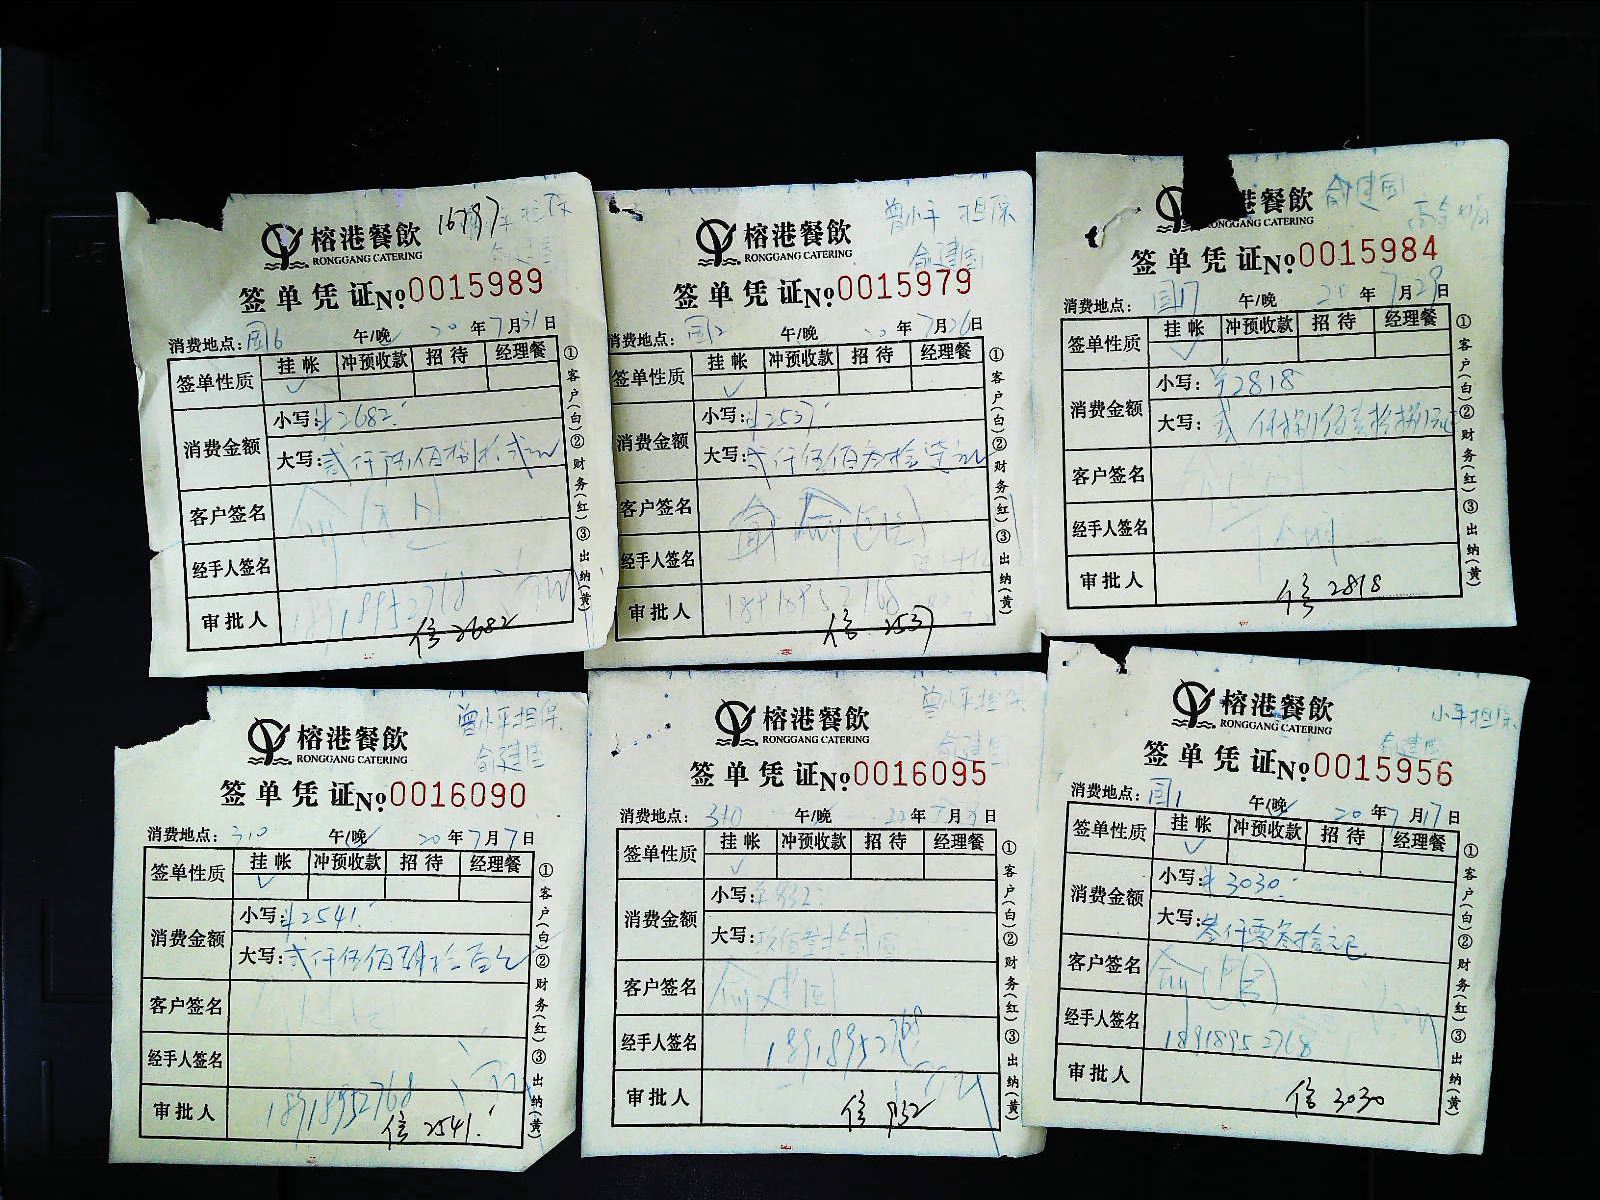 榕港餐飲
RONGGANG CATERING
16787
担保
签单凭证 No 0015989
消费地点: 国16 午/晚 20 年 7 月 31 日
签单性质 挂帐 冲预收款 招待 经理餐
消费金额
小写: ¥2682.
大写: 贰仟陆佰捌拾贰元
客户签名
经手人签名
审批人 18918952768
信 2682
①客户(白)②财务(红)③出纳(黄)
榕港餐飲
RONGGANG CATERING
曾小平 担保
俞建国
签单凭证 No 0015979
消费地点: 国12 20 年 7 月 26 日
签单性质 挂帐 冲预收款 招待 经理餐
消费金额
小写: ¥2537.
大写: 贰仟伍佰叁拾柒元
客户签名 俞建国
经手人签名
审批人 18918952768
信 2537
①客户(白)②财务(红)③出纳(黄)
餐飲
RONGGANG CATERING
俞建国
签单凭证 No 0015984
消费地点: 国17 午/晚 20 年 7 月 29 日
签单性质 挂帐 冲预收款 招待 经理餐
消费金额
小写: ¥2818
大写: 贰仟捌佰壹拾捌元
客户签名
经手人签名
审批人
信 2818
①客户(白)②财务(红)③出纳(黄)
榕港餐飲
RONGGANG CATERING
曾小平担保
俞建国
签单凭证 No 0016090
消费地点: 310 午/晚 20 年 7 月 7 日
签单性质 挂帐 冲预收款 招待 经理餐
消费金额
小写: ¥2541.
大写: 贰仟伍佰肆拾壹元
客户签名
经手人签名
审批人 18918952768
信 2541.
①客户(白)②财务(红)③出纳(黄)
榕港餐飲
RONGGANG CATERING
曾小平担保
俞建国
签单凭证 No 0016095
消费地点: 310 午/晚 20 年 月 日
签单性质 挂帐 冲预收款 招待 经理餐
消费金额
小写: ¥932.
大写:
客户签名 俞建国
经手人签名 18918952768
审批人
信 932
①客户(白)②财务(红)③出纳(黄)
榕港餐飲
RONGGANG CATERING
小平担保
俞建国
签单凭证 No 0015956
消费地点: 国1 午/晚 20 年 7 月 17 日
签单性质 挂帐 冲预收款 招待 经理餐
消费金额
小写: ¥3030.
大写: 叁仟零叁拾元
客户签名
经手人签名 18918952768
审批人
信 3030
①客户(白)②财务(红)③出纳(黄)